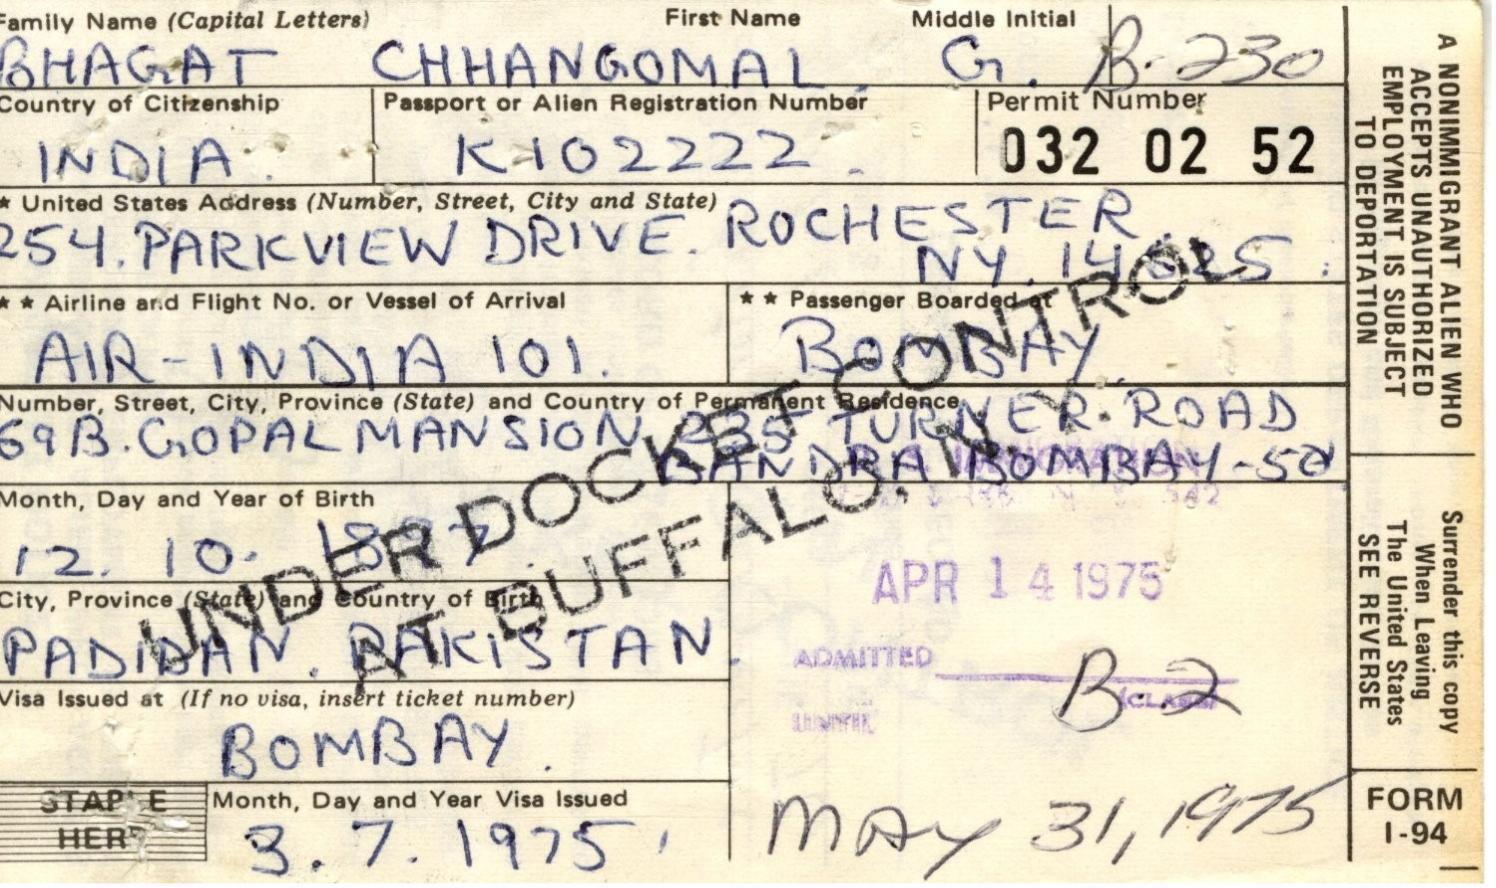 Family Name (Capital Letters) First Name Middle Initial
BHAGAT CHHANGOMAL G. B-230
Country of Citizenship Passport or Alien Registration Number Permit Number
INDIA. K102222. 032 02 52
* United States Address (Number, Street, City and State)
254. PARKVIEW DRIVE. ROCHESTER
NY. 14625.
* * Airline and Flight No. or Vessel of Arrival * * Passenger Boarded at
AIR-INDIA 101. BOMBAY.
Number, Street, City, Province (State) and Country of Permanent Residence
69B. GOPAL MANSION 235 TURNER ROAD
BANDRA BOMBAY-50
Month, Day and Year of Birth
12. 10.
City, Province (State) and Country of Birth
PADIDAN. PAKISTAN.
Visa Issued at (If no visa, insert ticket number)
BOMBAY.
STAPLE
HERE
Month, Day and Year Visa Issued
3. 7. 1975.
UNDER DOCKET CONTROL
AT BUFFALO, N. Y.
IMMIGRATION
APR 14 1975
ADMITTED B-2
(CLASS)
UNTIL
MAY 31, 1975
A NONIMMIGRANT ALIEN WHO
ACCEPTS UNAUTHORIZED
EMPLOYMENT IS SUBJECT
TO DEPORTATION
Surrender this copy
When Leaving
The United States
SEE REVERSE
FORM
I-94